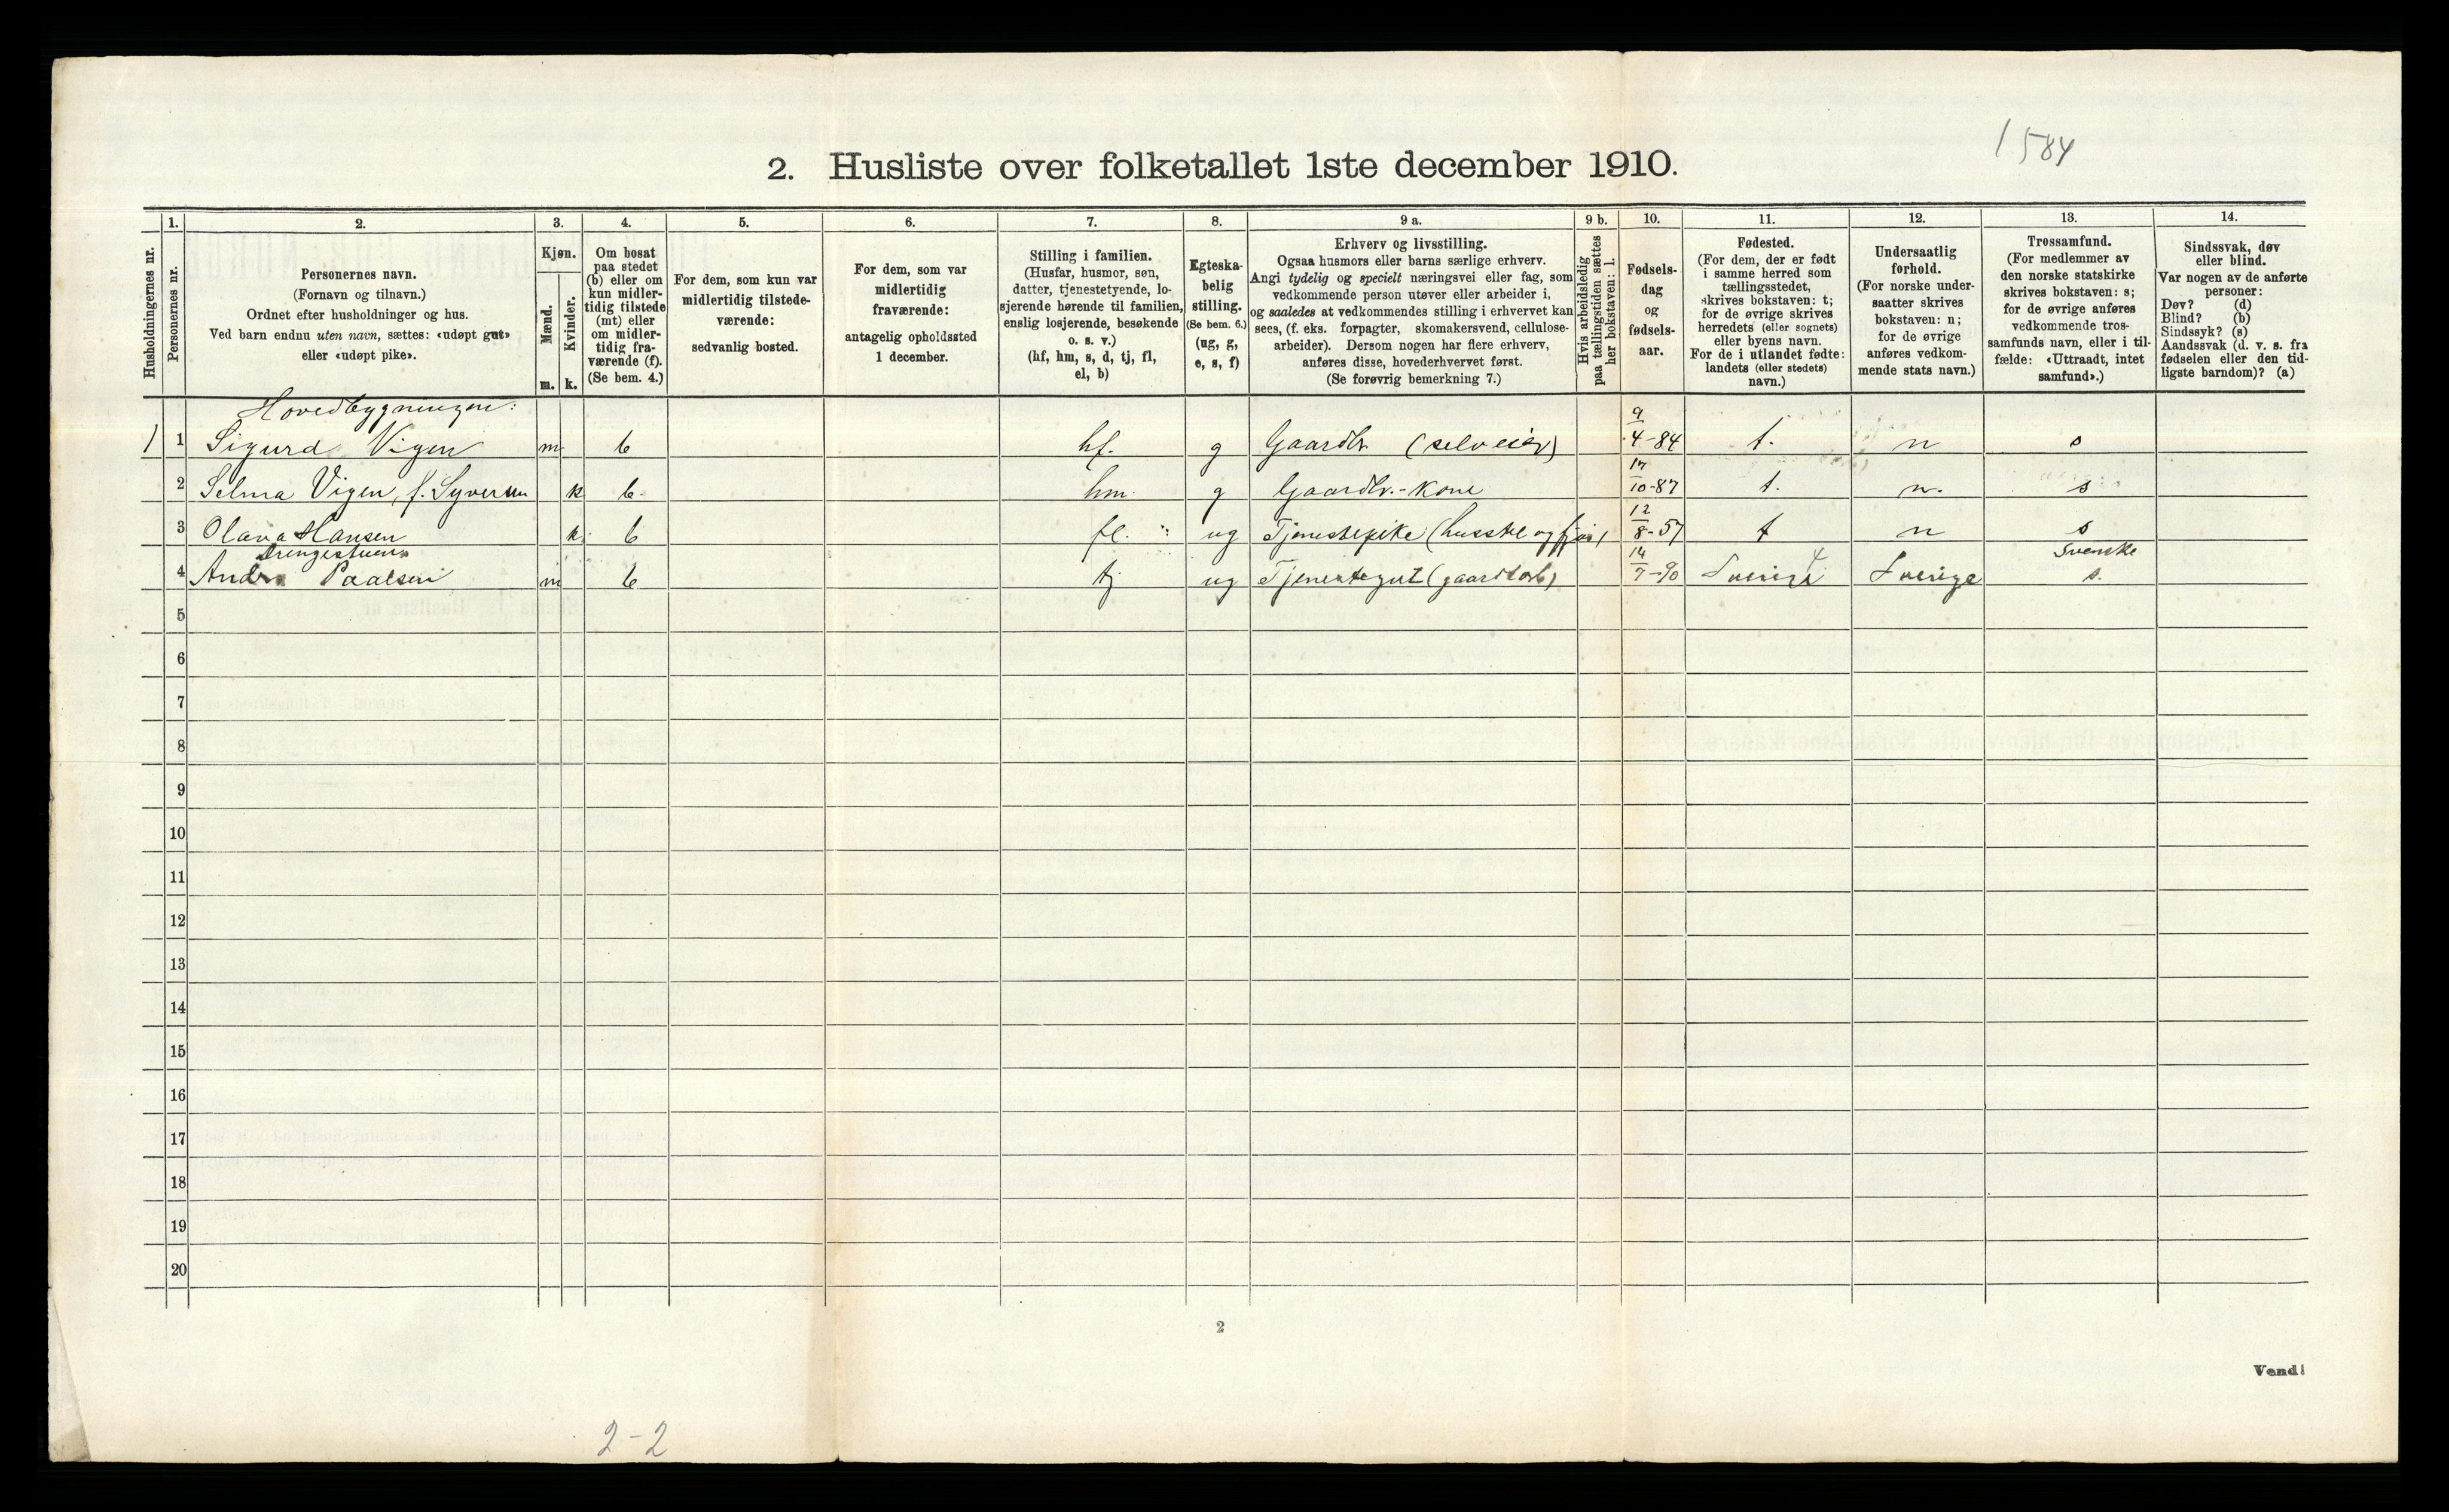 1584
2. Husliste over folketallet 1ste december 1910.
Husholdningernes nr.
1.
Personernes nr.
2.
Personernes navn.
(Fornavn og tilnavn.)
Ordnet efter husholdninger og hus.
Ved barn endnu uten navn, sættes: «udøpt gut»
eller «udøpt pike».
3.
Kjøn.
Mænd.
m.
Kvinder.
k.
4.
Om bosat
paa stedet
(b) eller om
kun midler-
tidig tilstede
(mt) eller
om midler-
tidig fra-
værende (f).
(Se bem. 4.)
5.
For dem, som kun var
midlertidig tilstede-
værende:
sedvanlig bosted.
6.
For dem, som var
midlertidig
fraværende:
antagelig opholdssted
1 december.
7.
Stilling i familien.
(Husfar, husmor, søn,
datter, tjenestetyende, lo-
sjerende hørende til familien,
enslig losjerende, besøkende
o. s. v.)
(hf, hm, s, d, tj, fl,
el, b)
8.
Egteska-
belig
stilling.
(Se bem. 6.)
(ug, g,
e, s, f)
9 a.
Erhverv og livsstilling.
Ogsaa husmors eller barns særlige erhverv.
Angi tydelig og specielt næringsvei eller fag, som
vedkommende person utøver eller arbeider i,
og saaledes at vedkommendes stilling i erhvervet kan
sees, (f. eks. forpagter, skomakersvend, cellulose-
arbeider). Dersom nogen har flere erhverv,
anføres disse, hovederhvervet først.
(Se forøvrig bemerkning 7.)
9 b.
Hvis arbeidsledig
paa tællingstiden sættes
her bokstaven: l.
10.
Fødsels-
dag
og
fødsels-
aar.
11.
Fødested.
(For dem, der er født
i samme herred som
tællingsstedet,
skrives bokstaven: t;
for de øvrige skrives
herredets (eller sognets)
eller byens navn.
For de i utlandet fødte:
landets (eller stedets)
navn.)
12.
Undersaatlig
forhold.
(For norske under-
saatter skrives
bokstaven: n;
for de øvrige
anføres vedkom-
mende stats navn.)
13.
Trossamfund.
(For medlemmer av
den norske statskirke
skrives bokstaven: s;
for de øvrige anføres
vedkommende tros-
samfunds navn, eller i til-
fælde: «Uttraadt, intet
samfund».)
14.
Sindssvak, døv
eller blind.
Var nogen av de anførte
personer:
Døv? (d)
Blind? (b)
Sindssyk? (s)
Aandssvak (d. v. s. fra
fødselen eller den tid-
ligste barndom)? (a)
Hovedbygningen:
1 1 Sigurd Vigen m b hf. g Gaardbr. (selveier) 9/4-84 t. n s
2 Selma Vigen, f. Syversen k b hm. g Gaardbr.-kone 17/10-87 t. n. s
3 Olava Hansen k b fl. ug Tjenestepike (husstel og fjøs) 12/8-57 t n s
Drengestuen
4 Paalsen m b tj ug Tjenestegut (gaardsarb) 14/7-90 Sverige 4 Sverige Svenske s.
5
6
7
8
9
10
11
12
13
14
15
16
17
18
19
20
2
Vend!
2-2